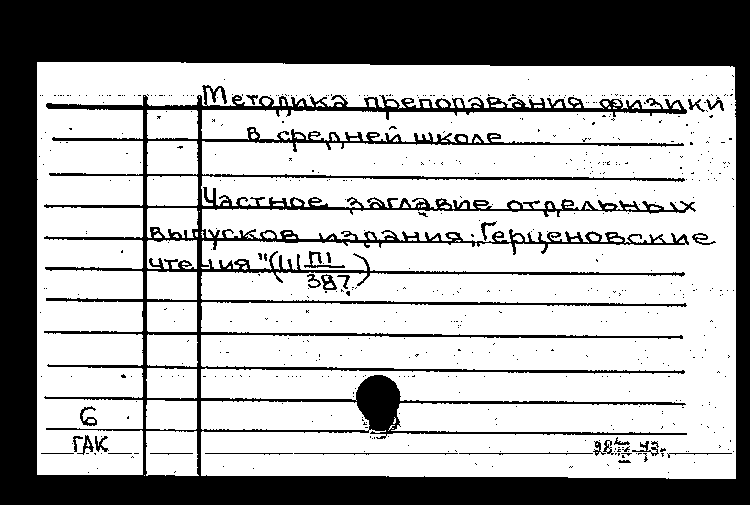 Методика преподавания физики
в средней школе
Частное заглавие отдельных
выпусков издания: „Герценовские
чтения" (Ш П1/387)
6
ГАК